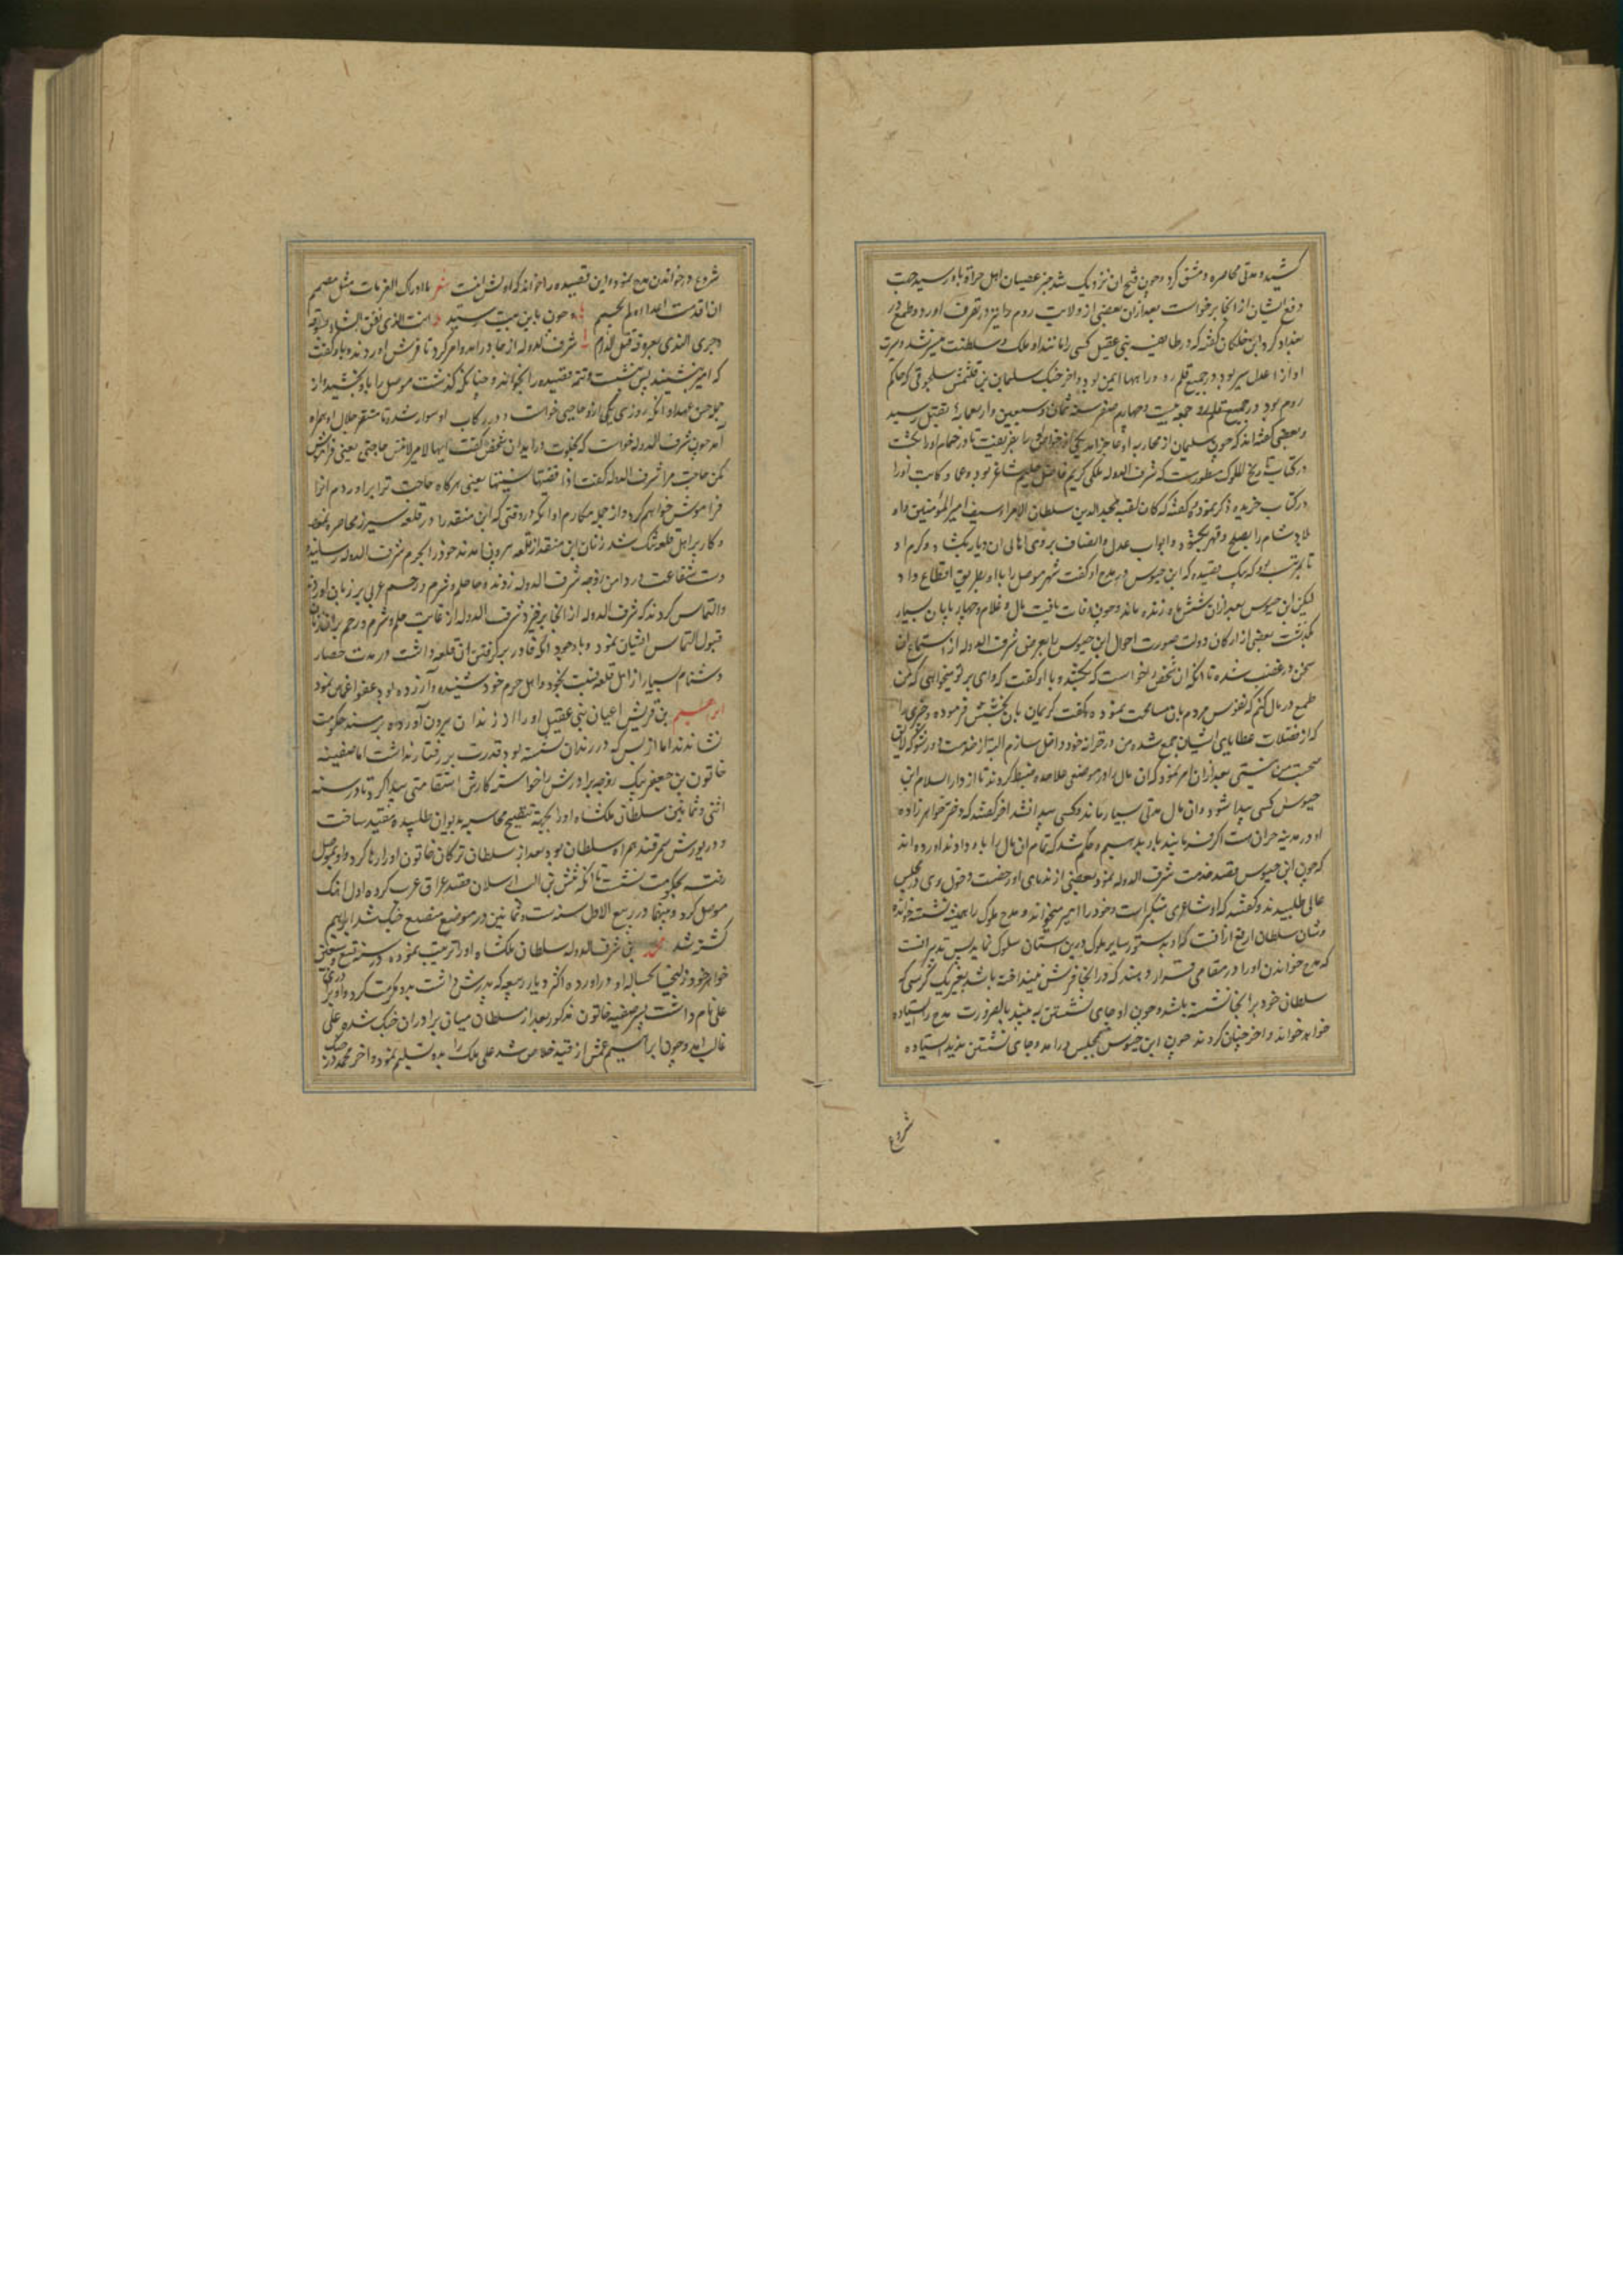 کشید و مدتی محاصره دمشق کرد و چون فتح ان نزدیک شد خبر عصیان اهل حران باو رسید جهت
دفع ایشان از انجا برخواست بعد ازان بعضی از ولایت روم را نیز در تصرف اورد و طمع در
بغداد کرد ابن خلکان کفته که در طایفه بنی عقیل کسی را مانند او ملک و سلطنت میسر نشد و سیرت
او از اعدل سیر بود در جمیع قلمرو او راهها ایمن بود و اخر جنک سلیمان بن قتلمش سلجوقی که حاکم
روم بود در جمعه بیست و چهارم صفر سنه ثمان و سبعین و اربعمائة بقتل رسید
و بعضی کفته‌اند که چون سلیمان از محاربه او عاجز امد یکی از خواص او را بفریفت تا در حمام او را بکشت
در کتاب تاریخ الملوک مسطورست که شرف الدوله ملکی کریم فاضل حلیم شاعر بود و عماد کاتب او را
در کتاب خریده ذکر نموده و کفته که کان لقبه مجد الدین سلطان الامرا و سیف امیر المؤمنین واو
بلاد شام را بصلح و قهر بکشود و ابواب عدل و انصاف بروی اهالی ان دیار بکشاد و کرم او
تا بمرتبه بود که بیک قصیده که ابن حیوس در مدح او کفت شهر موصل را باو بطریق اقطاع داد
لیکن ابن حیوس بعد ازان شش ماه زنده ماند و چون وفات یافت مال و غلام و چهارپایان بسیار
بکذاشت بعضی از ارکان دولت صورت احوال ابن حیوس را بعرض شرف الدوله از استماع ان
سخن در غضب شده تا انکه ان شخص را خواست که بکشد و با او کفت که وای بر تو میخواهی که من
طمع در مال کنم که نفوس مردم بان مسامحت نموده و کفت کریمان بان بخشش فرموده و چیزی را
که از فضلات عطایای ایشان جمع شده من در خزانه خود داخل سازم البته از خدمت من دور شو که لایق
صحبت من نیستی بعد ازان امر نمود که ان مال را در موضعی علاحده ضبط کردند تا از دار السلام ابن
حیوس کسی پیدا شود و ان مال مدتی بسیار ماند و کسی پیدا نشد اخر کفتند که دختر خواهر زاده
او در مدینه حران هست اکر فرمایند باو بدهیم و حکم شد که تمام ان مال را باو دادند اورده‌اند
که چون ابن حیوس قصد خدمت شرف الدوله نمود بعضی از ندمای او رخصت دخول وی در مجلس
عالی طلبیدند و کفتند که او شاعری متکبر است و خود را امیر میخواند و مدح ملوک را همیشه نشسته خوانده
و شان سلطان ارفع از انست که او بدستور سایر ملوک در این استان سلوک نماید پس تدبیر انست
که مدح خواندن او را در مقامی قرار دهند که در انجا فرش نینداخته باشند بغیر یک کرسی که
سلطان خود بر انجا نشسته باشد و چون او جای نشستن نبیند بالضرورت مدح را ایستاده
خواهد خواند و اخر چنان کردند چون ابن حیوس بمجلس درامد و جای نشستن ندید ایستاده
شروع
شروع در خواندن مدح نمود و این قصیده را خواند که اولش اینست شعر ما ادرک الغربات مثل مصمم
ان اقدمت اعداؤه لم یحجم و چون باین بیت رسید انت الذی نفق الثناء بسوقه
و جری الندی بعروقه قبل الدم شرف الدوله از جا درامد و امر کرد تا فرش اوردند و باو کفت
که امیر بنشیند پس بنشست و تتمه قصیده را بخواند و چنانکه کذشت موصل را باو بخشید و از
جمله حسن عهد او انکه روزی یکی ازو حاجتی خواست و در رکاب او سوار شده تا مستقر جلال او همراه
امد چون شرف الدوله خواست که بخلوت دراید ان شخص کفت ایها الامیر لا تنس حاجتی یعنی فراموش
مکن حاجت مرا شرف الدوله کفت اذا قضیتها نسیتها یعنی هرکاه حاجت ترا براوردم انرا
فراموش خواهم کرد و از جمله مکارم او انکه در وقتی که ابن منقذ را در قلعه شیزر محاصره نمود
و کار بر اهل قلعه تنک شد زنان ابن منقذ از قلعه بیرون امدند خود را بحرم شرف الدوله رسانیده
دست شفاعت در دامن زوجه شرف الدوله زدند و جا حلم و شرم و رحم عربی بر زبان اوردند
و التماس کردند که شرف الدوله از انجا برخیزد شرف الدوله از غایت حلم و شرم و رحم
قبول التماس ایشان نمود و با وجود انکه قادر بر کرفتن ان قلعه داشت و در مدت حصار
دشنام بسیار از اهل قلعه نسبت بخود و اهل حرم خود شنیده و آزرده بود عفو اغماض نمود
ابراهیم بن قریش اعیان بنی عقیل او را از زندان بیرون آورده بر مسند حکومت
نشاندند اما از بس که در زندان نشسته بود قدرت بر رفتار نداشت اما صفیه
خاتون بن جعفر بیک زوجه برادرش را خواسته کارش استقامتی پیدا کرد تا در سنه
اثنی و ثمانین سلطان ملکشاه او را بجهة تنقیح محاسبه بدیوان طلبیده مقید ساخت
و در یورش سمرقند همراه سلطان بود بعد از سلطان ترکان خاتون او را رها کرد و او بموصل
رفته بحکومت نشست تا انکه تتش بن الب ارسلان قصد عراق عرب کرده اول اهنک
موصل کرد و میقا در ربیع الاول سنه ست و ثمانین در موضع مضیع جنک شد ابراهیم
کشته شد محمد بن شرف الدوله سلطان ملکشاه او را تربیت نموده در سنه تسع و سبعین
خواهر خود زلیخا بحباله او دراورده اکثر دیار ربیعه که پدرش داشت بدو مکرمت کرد و او برادری
علی نام داشت پسر صفیه خاتون مذکور بعد از سلطان میان برادران جنک شده علی
غالب امد و چون ابراهیم عمش از قید خلاص شد علی ملک را بدو تسلیم نموده و اخر محمد در جنک